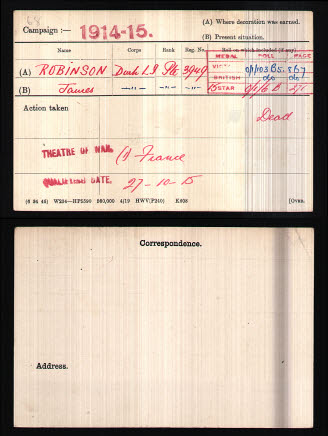 68
Campaign :— 1914-15.
(A) Where decoration was earned.
(B) Present situation.
Name Corps Rank Reg. No. Roll on which included (if any)
MEDAL ROLL PAGE
(A) ROBINSON Durh L.I Pte 3949 VICTORY O/1/103 B5. 867
(B) James —"— —"— —"— BRITISH do do
15 STAR O/1/6 B 271
Action taken
Dead
THEATRE OF WAR. (1) France
QUALIFYING DATE. 27-10-15
(6 34 46) W234—HP5590 500,000 4/19 HWV(P240) K608 [Over.
Correspondence.
Address.